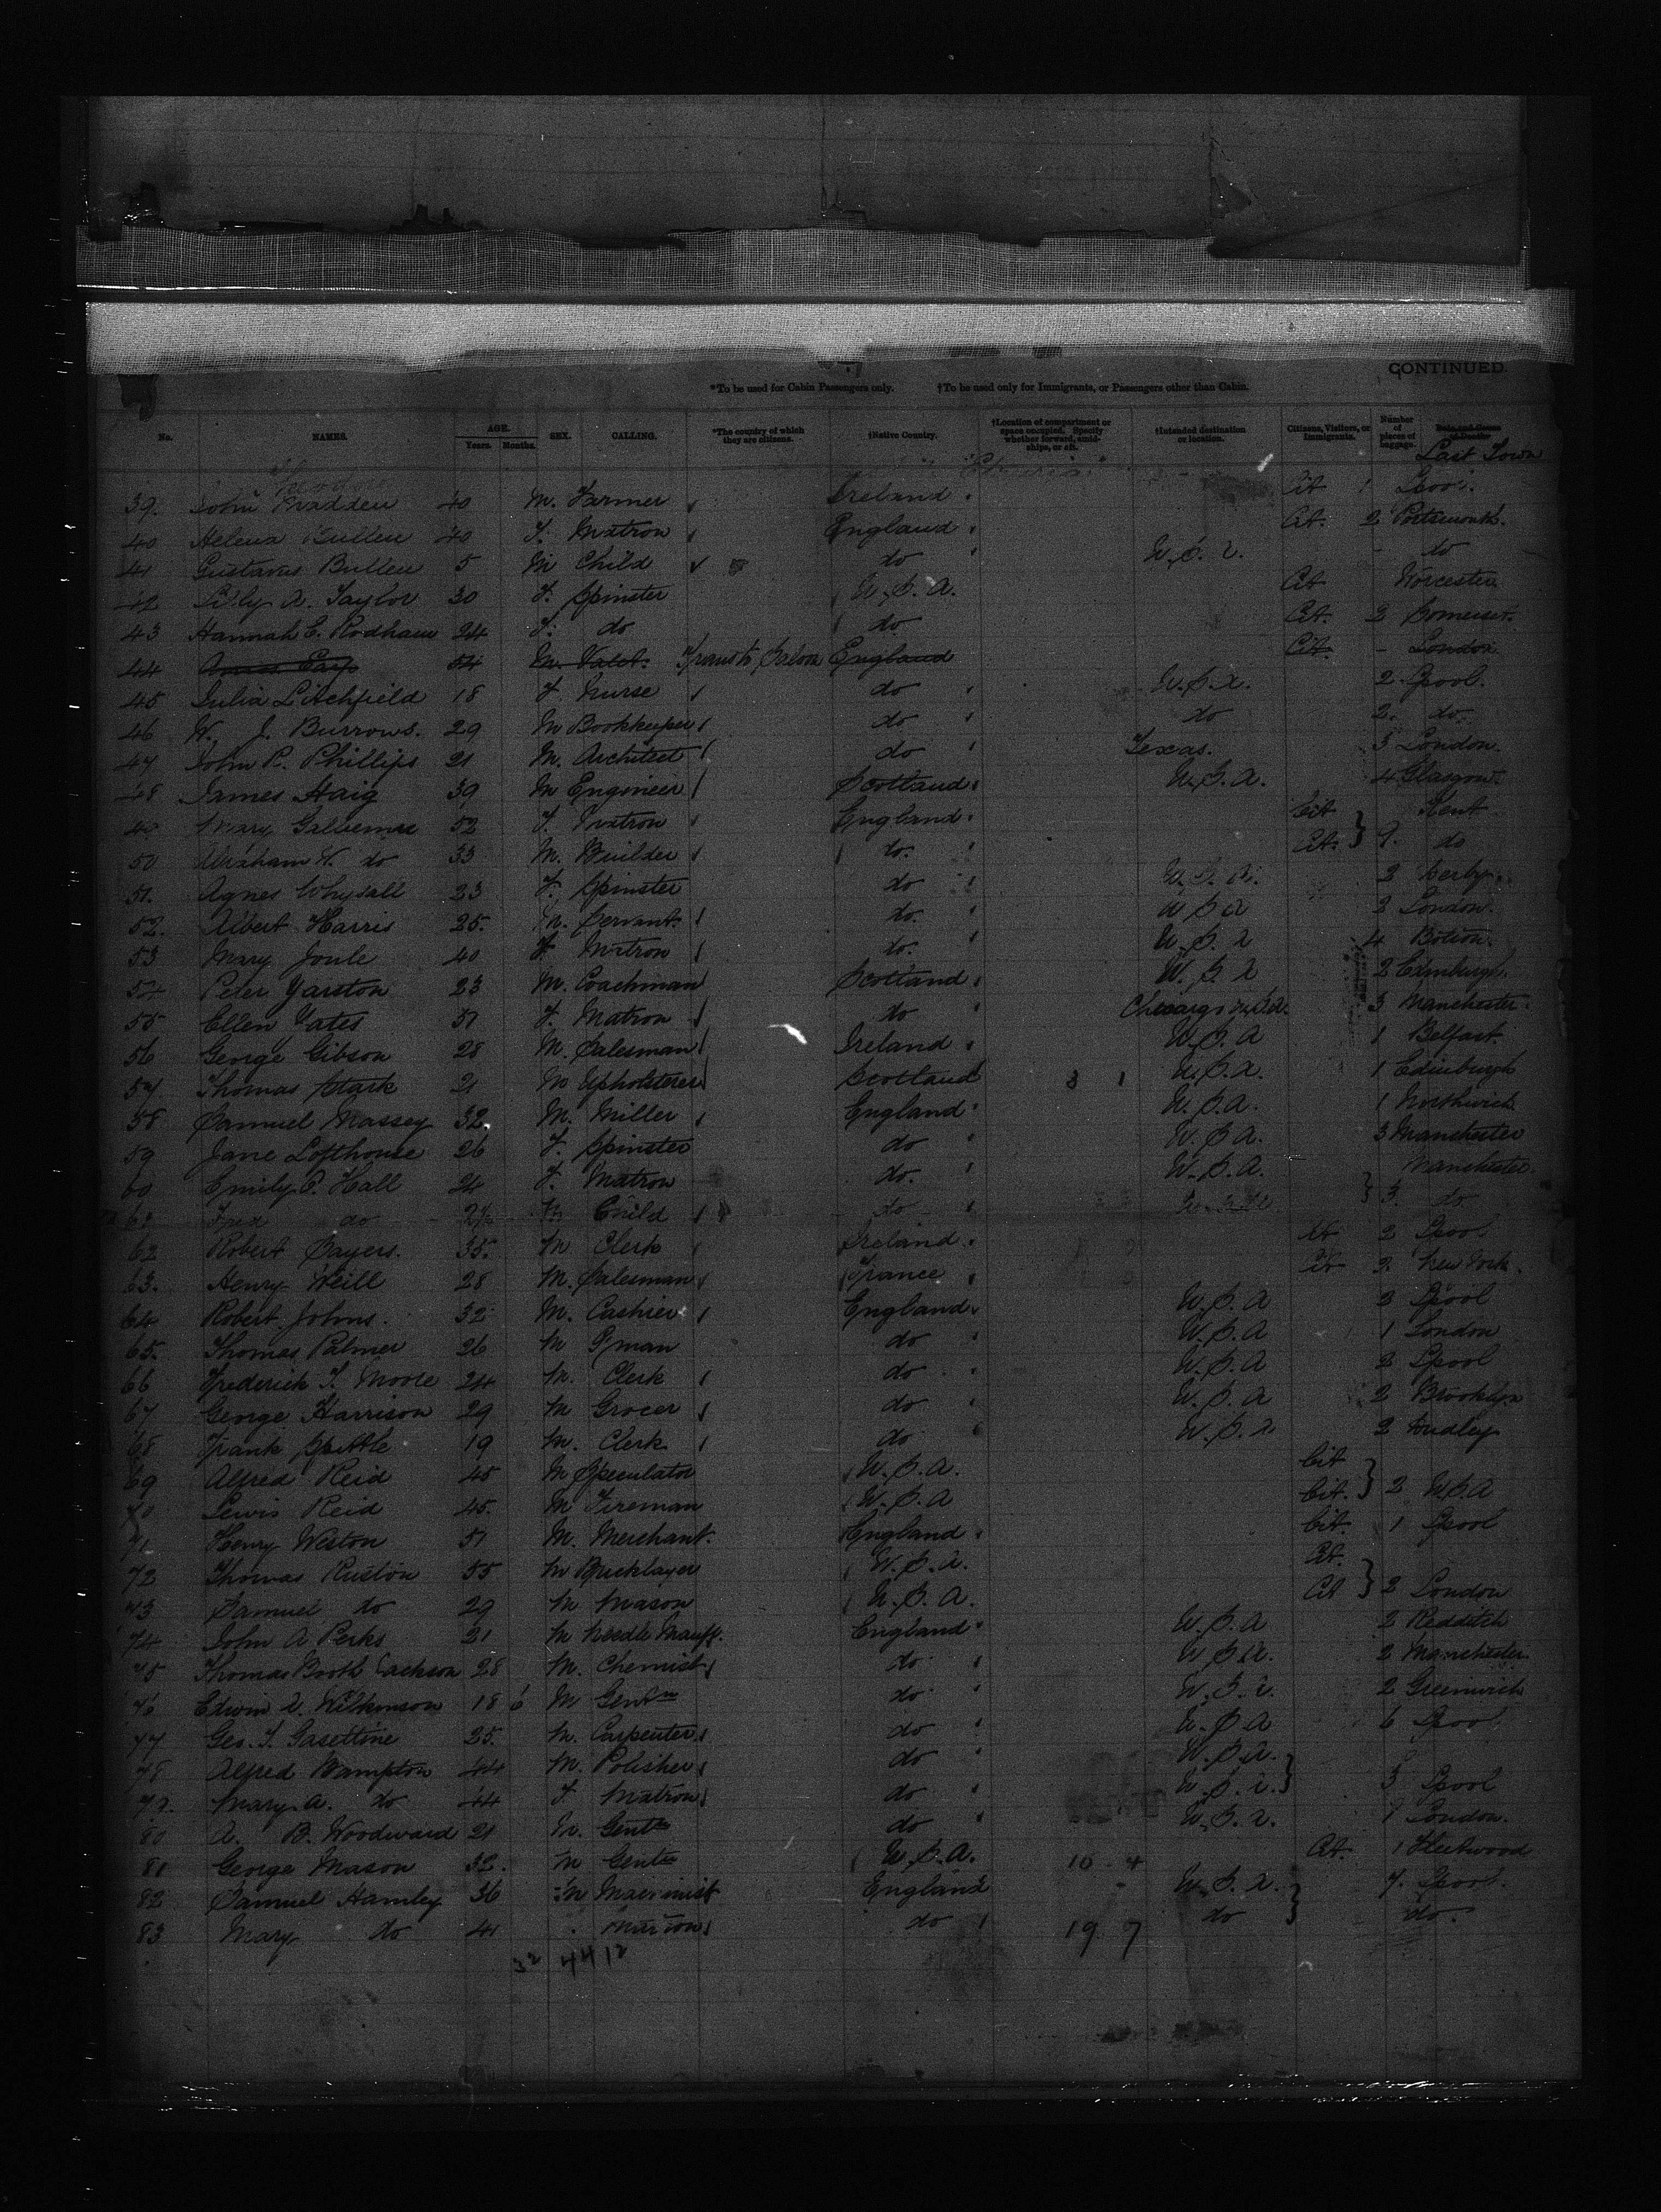 CONTINUED.
*To be used for Cabin Passengers only. †To be used only for Immigrants, or Passengers other than Cabin.
No. NAMES. AGE. Years. Months. SEX. CALLING. *The country of which they are citizens. †Native Country. †Location of compartment or space occupied. Specify whether forward, amidships, or aft. †Intended destination or location. Citizens, Visitors, or Immigrants. Number of pieces of baggage. Date and Cause of Death
Last Town
39. John Madden 40 M. Farmer Ireland Cit 1 Lpool.
40 Helena Bullen 40 F. Matron England Cit. 2 Portsmouth.
41 Gustavus Bullen 5 M Child do U.S.A. - do
42 Lily A. Taylor 30 F. Spinster U.S.A. Cit Worcester
43 Hannah E. Rodham 24 F. do do Cit. 2 Somerset.
44 54 M. Valet. Trans to Saloon England Cit. - London
45 Julia Litchfield 18 F. Nurse do U.S.A. 2 Lpool.
46 W. J. Burrows. 29 M Bookkeeper do do 2. do.
47 John P. Phillips 21 M. Architect do Texas. 3 London.
48 James Haig 39 M Engineer Scotland U.S.A. 4 Glasgow.
49 Mary 52 F. Matron England Cit Kent
50 Abraham W. do 33 M. Builder do. Cit. } 9. do
51. Agnes Whysall 23 F. Spinster do U.S.A. 2 Derby.
52. Albert Harris 25. M. Servant. do. U S A 2 London.
53 Mary Joule 40 F. Matron do. U.S.A 4 Bolton.
54 Peter Yarston 23 M. Coachman Scotland U.S.A 2 Edinburgh.
55 Ellen Yates 51 F. Matron do Chicargo U.S.A. 3 Manchester.
56 George Gibson 28 M. Salesman Ireland U.S.A 1 Belfast.
57. Thomas Stark 21 M Upholsterer Scotland 3 1 U.S.A. 1 Edinburgh
58 Samuel Massey 32. M. Miller England U.S.A. 1 Northwich
59 Jane Lofthouse 26 F. Spinster do U.S.A. 3 Manchester
60 Emily P. Hall 24 F. Matron do. U.S.A. Manchester.
61 Fred do M Child do } 3. do
62 Robert Sayers. 35. M Clerk Ireland. Cit 2 Lpool
63. Henry Weill 28 M. Salesman France Cit 2. New York.
64 Robert Johns. 32 M. Cashier England. U.S.A 3 Lpool
65. Thomas Palmer 26 M G'man do U.S.A 1 London
66 Frederick T. Moore 24 M. Clerk do U.S.A 2 Lpool
67 George Harrison 29 M Grocer do U.S.A 2 Brooklyn
68 Frank Spittle 19 M. Clerk do U.S.A 2 Dudley
69 Alfred Reid 45 M Speculator U.S.A. Cit
70 Lewis Reid 45. M Fireman U.S.A Cit. } 2 U.S.A
71. Henry Weston 51 M. Merchant. England Cit. 1 Lpool
72 Thomas Ruston 55 M Bricklayer U.S.A. Cit.
73 Samuel do 29 M Mason U.S.A. Cit } 2 London
74 John A Perks 21 M Needle Manfr. England U.S.A 2 Redditch
75 Thomas Booth Jackson 28 M. Chemist do U.S.A. 2 Manchester
76 Edwin A. Wilkinson 18 6 M Gentn do U.S.A. 2 Greenwich
77 Geo. T. Gasettine 25. M. Carpenter do U.S.A 6 Lpool
78 Alfred Bampton 44 M. Polisher do U.S.A.
79. Mary A. do 44 F Matron do U.S.A. } 3 Lpool
80 A. B. Woodward 21 M. Gentn do U.S.A. 1 London.
81 George Mason 32. M Gentn U.S.A. 16 4 Cit. 1 Fleetwood
82 Samuel Hamley 36 M Machinist England U.S.A. 7. Lpool.
83 Mary do 41 Matron do 19 7 do } do.
32 44 12